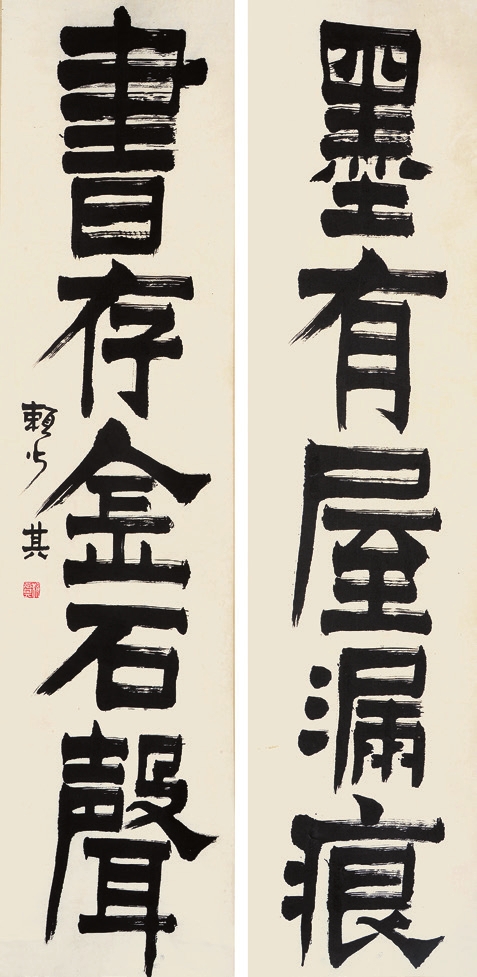 墨有屋漏痕
書存金石聲
賴少其